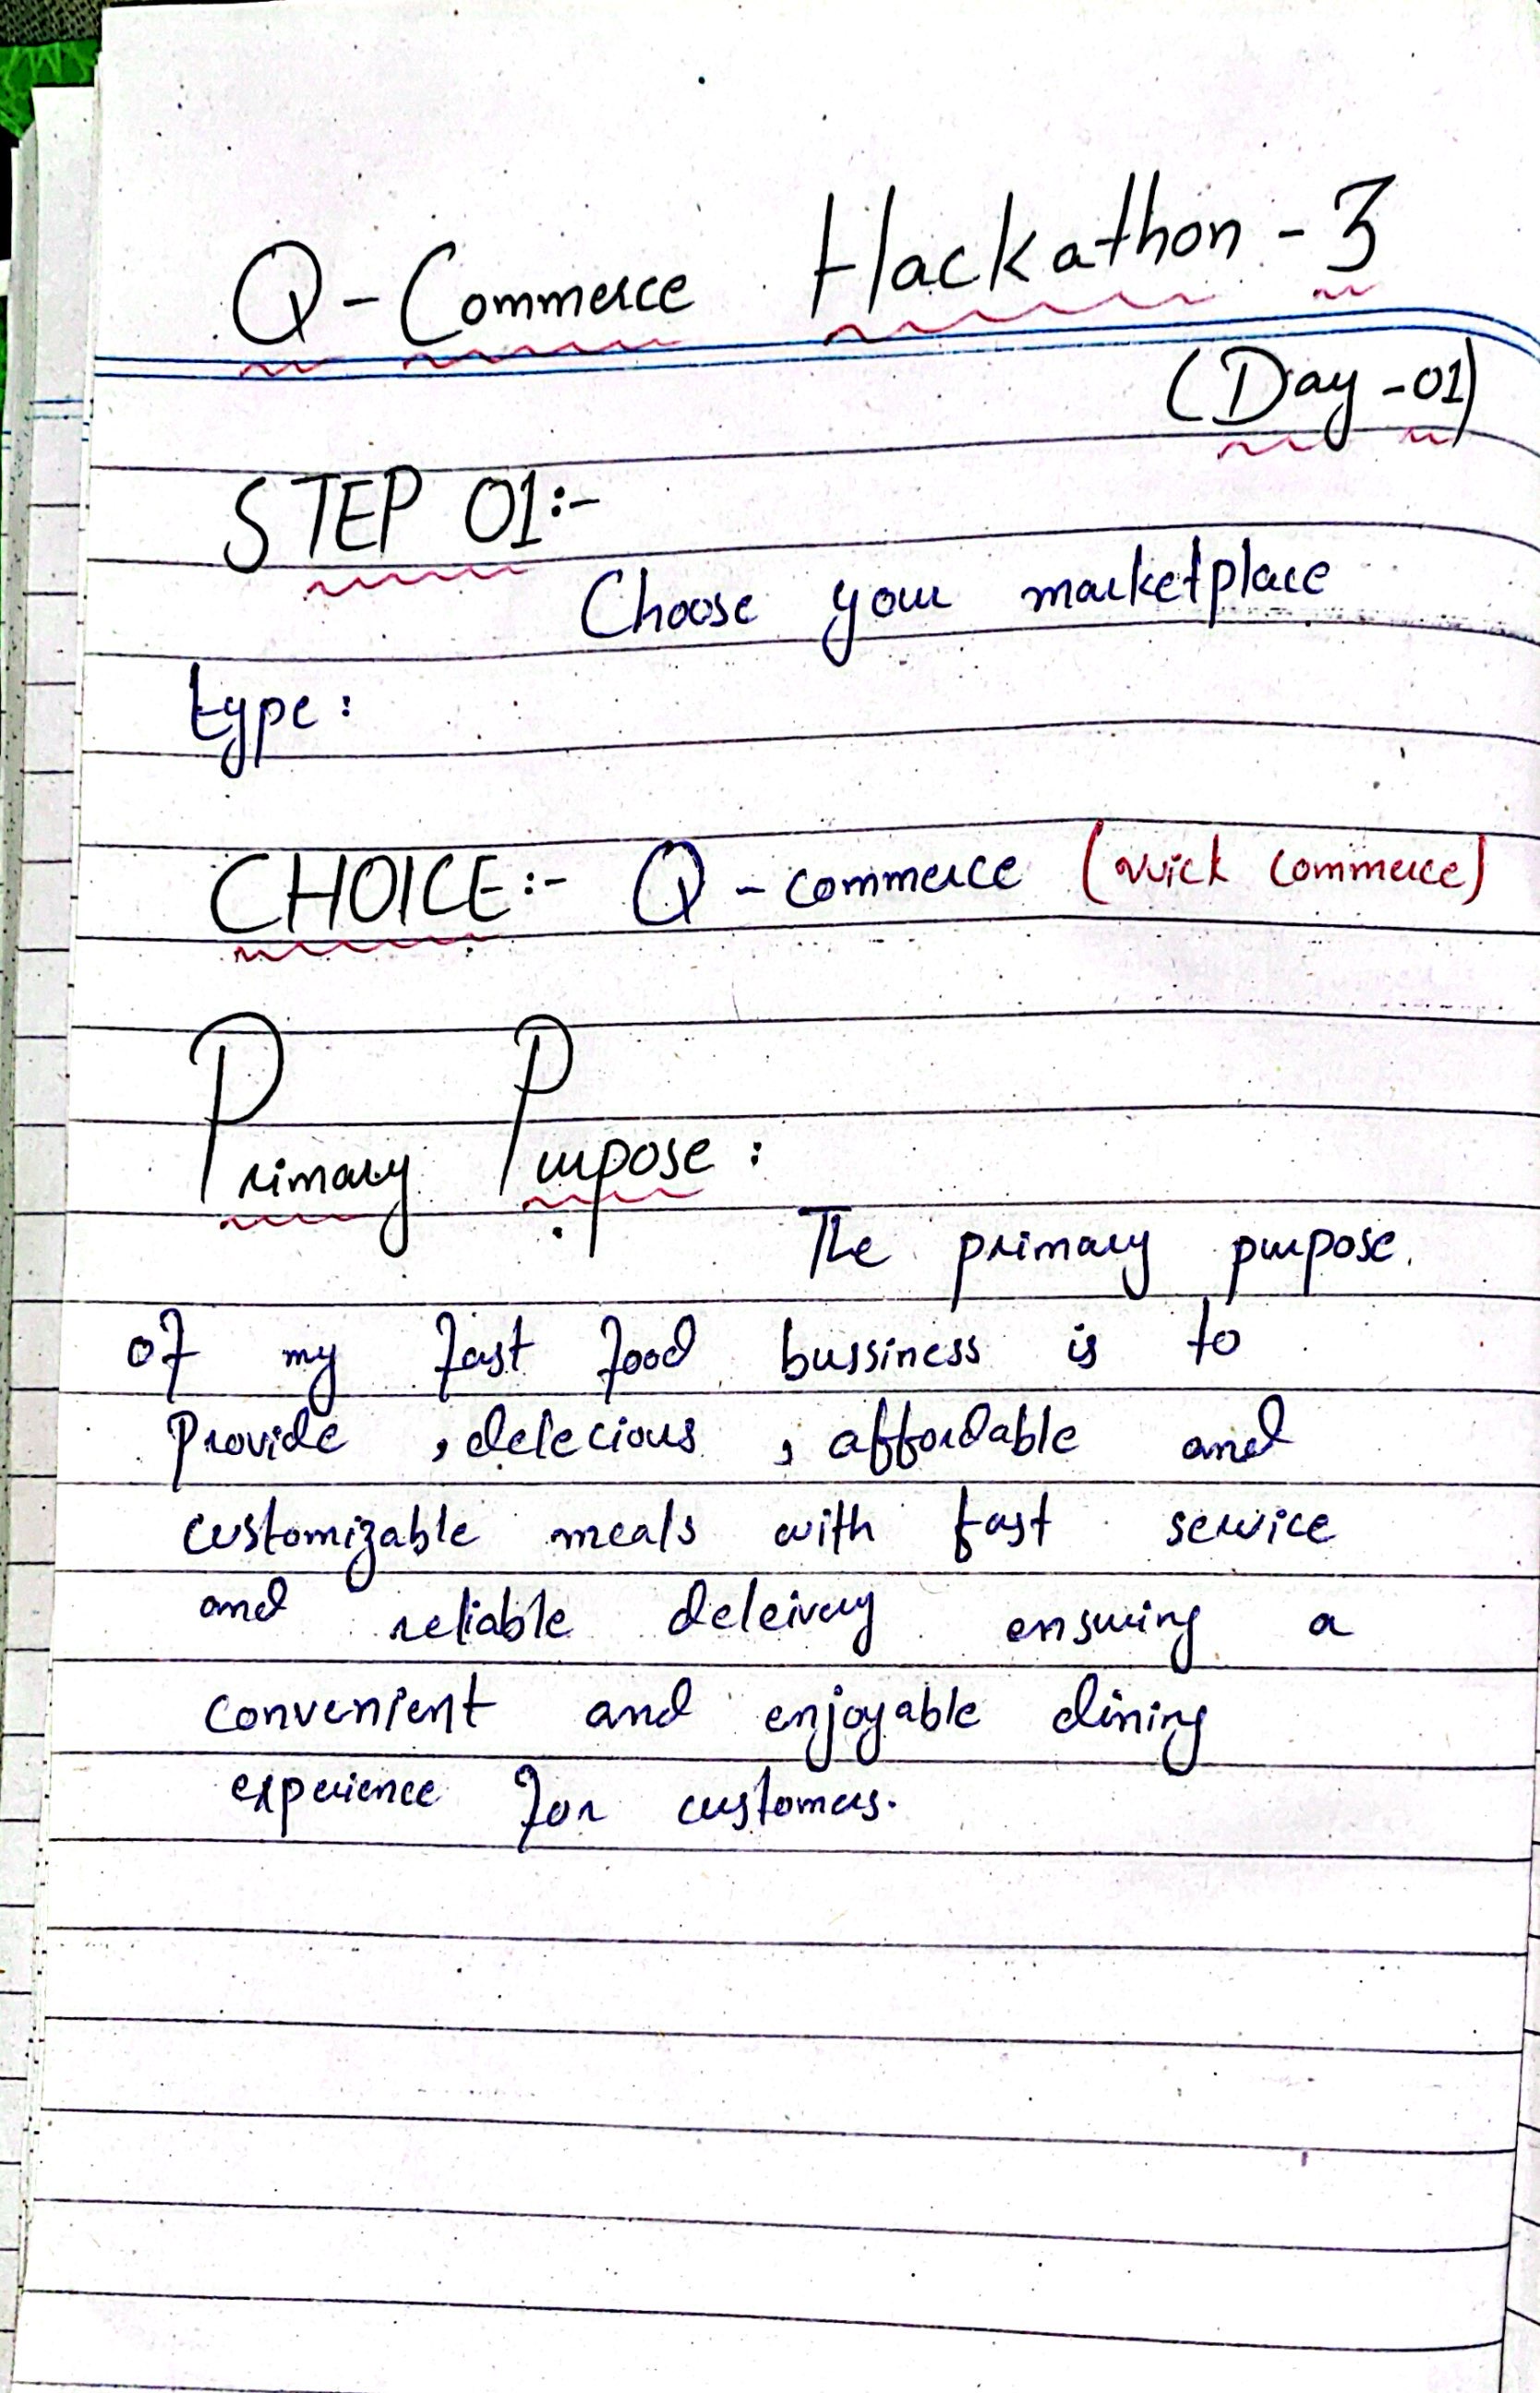 Q-Commerce Hackathon-3
(Day-01)
STEP 01:-
Choose your marketplace
type:
CHOICE:- Q-commerce (Quick Commerce)
Primary Purpose:
The primary purpose.
of my fast food bussiness is to
Provide , delecious , affordable and
customizable meals with fast service
and reliable deleivery ensuring a
convenient and enjoyable dining
experience for customers.